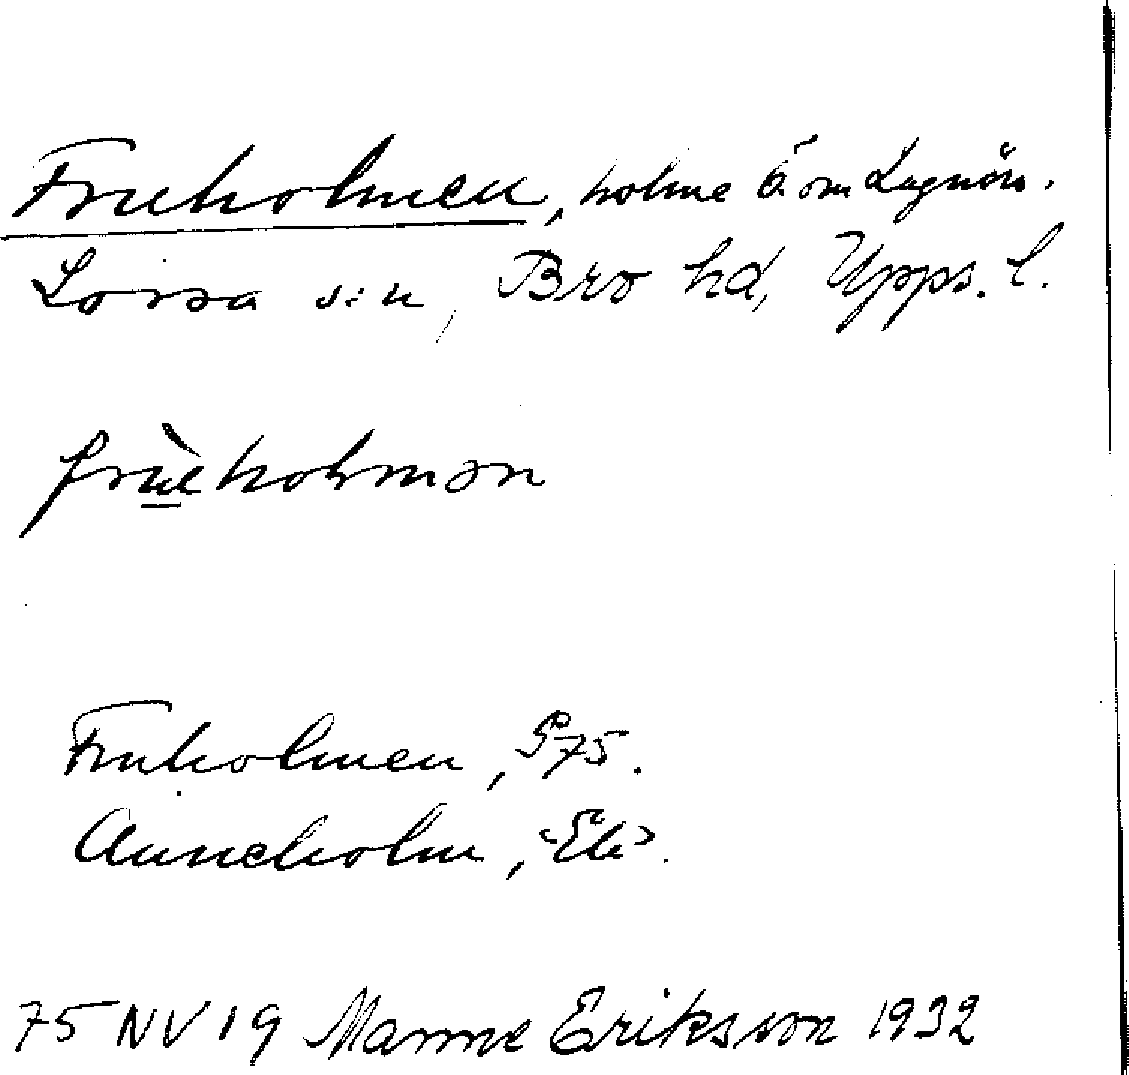 Fruholmen, holme Ö. om Lagnön.
Lossa s:n, Bro hd, Upps. l.
Fruholmen, G 75.
Anneholm, Ek.
75 NV 19 Manne Eriksson 1932